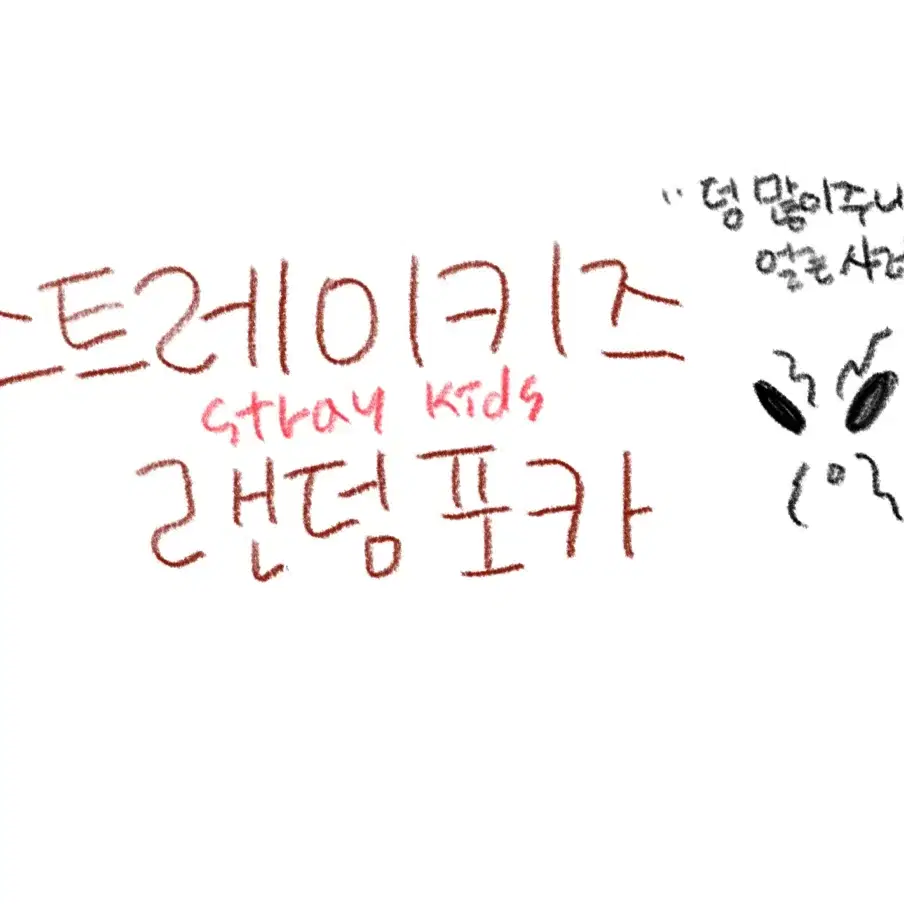 스트레이키즈
stray kids
랜덤포카
" 덩 많이주니
얼른 사